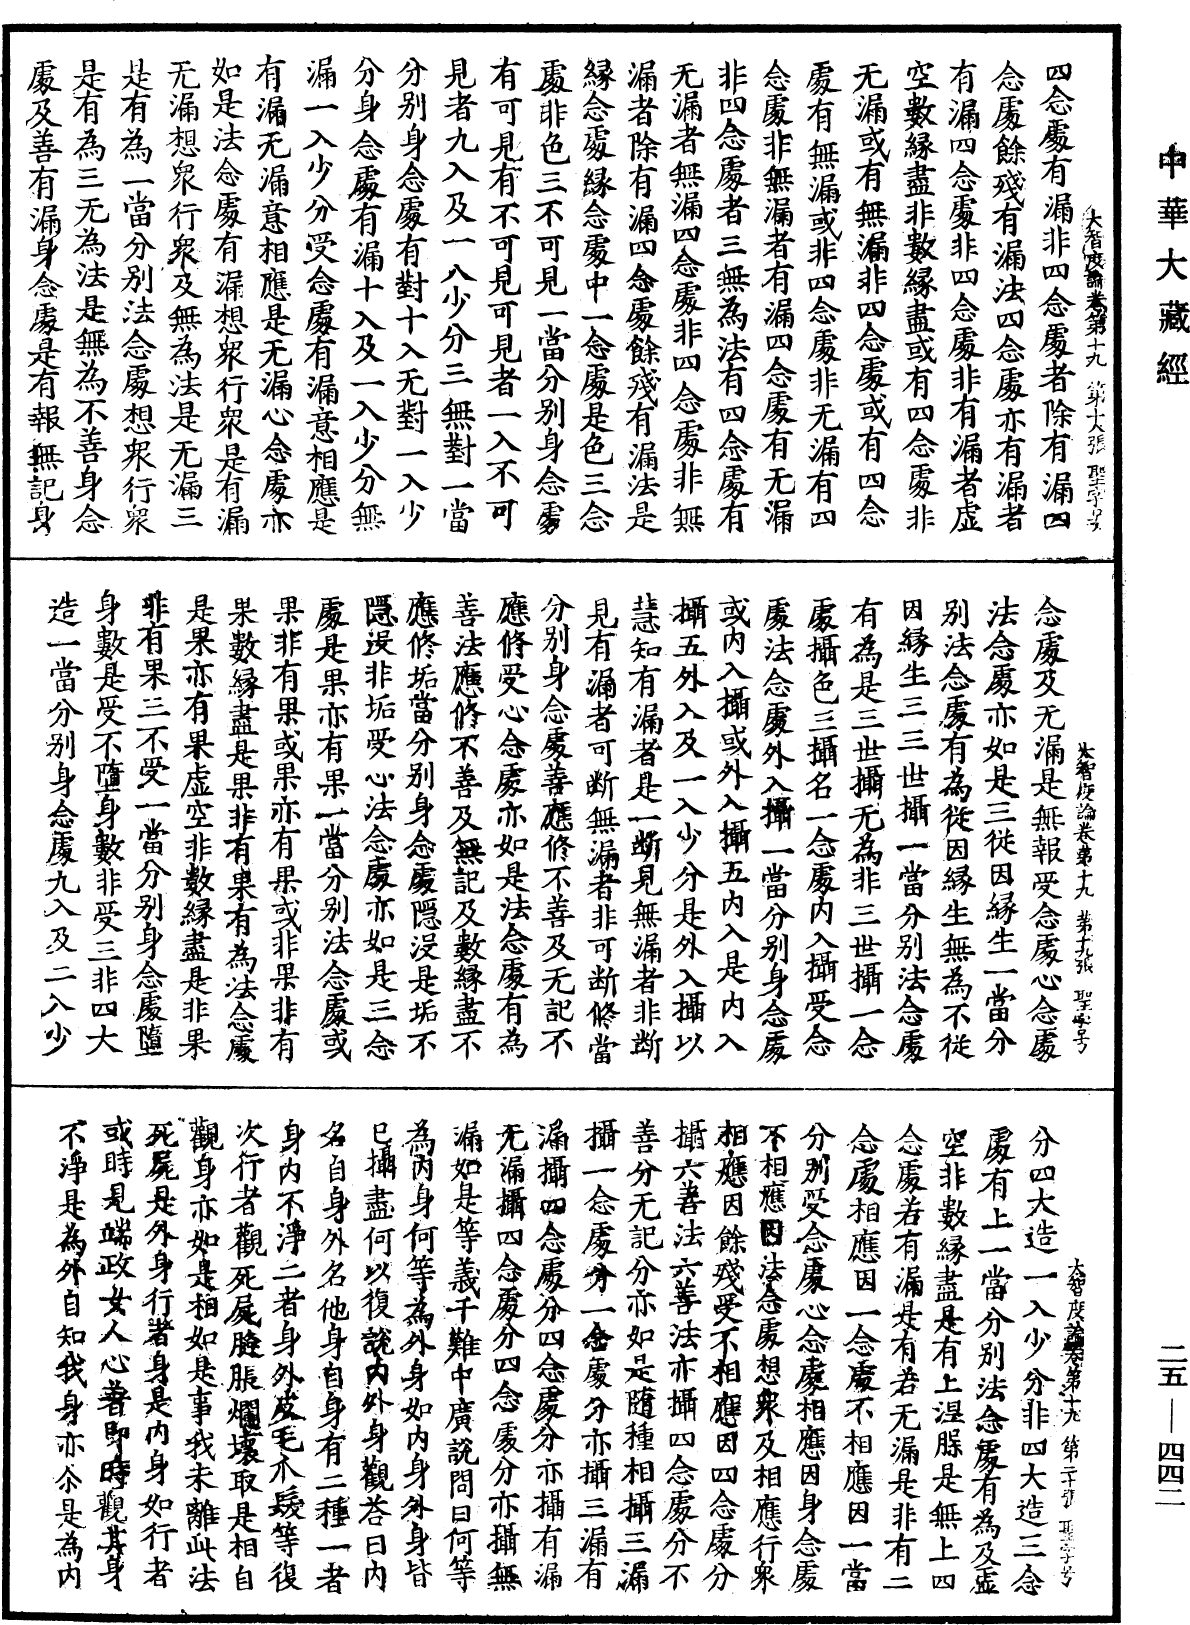 中華大藏經
大智度論卷第十九 第十八張 聖字号
四念處有漏非四念處者除有漏四
念處餘殘有漏法四念處亦有漏者
有漏四念處非四念處非有漏者虛
空數緣盡非數緣盡或有四念處非
无漏或有無漏非四念處或有四念
處有無漏或非四念處非无漏有四
念處非無漏者有漏四念處有无漏
非四念處者三無為法有四念處有
无漏者無漏四念處非四念處非無
漏者除有漏四念處餘殘有漏法是
緣念處緣念處中一念處是色三念
處非色三不可見一當分別身念處
有可見有不可見可見者一入不可
見者九入及一入少分三無對一當
分別身念處有對十入无對一入少
分身念處有漏十入及一入少分無
漏一入少分受念處有漏意相應是
有漏无漏意相應是无漏心念處亦
如是法念處有漏想衆行衆是有漏
无漏想衆行衆及無為法是无漏三
是有為一當分別法念處想衆行衆
是有為三无為法是無為不善身念
處及善有漏身念處是有報無記身
大智度論卷第十九 第十九張 聖字号
念處及无漏是無報受念處心念處
法念處亦如是三從因緣生一當分
別法念處有為從因緣生無為不從
因緣生三三世攝一當分別法念處
有為是三世攝无為非三世攝一念
處攝色三攝名一念處内入攝受念
處法念處外入攝一當分別身念處
或内入攝或外入攝五内入是内入
攝五外入及一入少分是外入攝以
慧知有漏者是斷見無漏者非斷
見有漏者可斷無漏者非可斷修當
分別身念處善應修不善及无記不
應修受心念處亦如是法念處有為
善法應修不善及無記及數緣盡不
應修垢當分別身念處隱没是垢不
隱没非垢受心法念處亦如是三念
處是果亦有果一當分別法念處或
果非有果或果亦有果或非果非有
果數緣盡是果非有果有為法念處
是果亦有果虛空非數緣盡是非果
非有果三不受一當分別身念處墮
身數是受不墮身數非受三非四大
造一當分別身念處九入及二入少
大智度論卷第十九 第二十張 聖字号
分四大造一入少分非四大造三念
處有上一當分別法念處有為及虛
空非數緣盡是有上涅槃是無上四
念處若有漏是有若无漏是非有二
念處相應因一念處不相應因一當
分別受念處心念處相應因身念處
不相應因法念處想衆及相應行衆
相應因餘殘受不相應因四念處分
攝六善法六善法亦攝四念處分不
善分无記分亦如是隨種相攝三漏
攝一念處分一念處分亦攝三漏有
漏攝四念處分四念處分亦攝有漏
无漏攝四念處分四念處分亦攝無
漏如是等義千難中廣説問曰何等
為内身何等為外身如内身外身皆
已攝盡何以復説内外身觀荅曰内
名自身外名他身自身有二種一者
身内不淨二者身外皮毛爪髮等復
次行者觀死屍膖脹爛壞取是相自
觀身亦如是相如是事我未離此法
死屍是外身行者身是内身如行者
或時見端政女人心著即時觀其身
不淨是為外自知我身亦尒是為内
二五—四四二